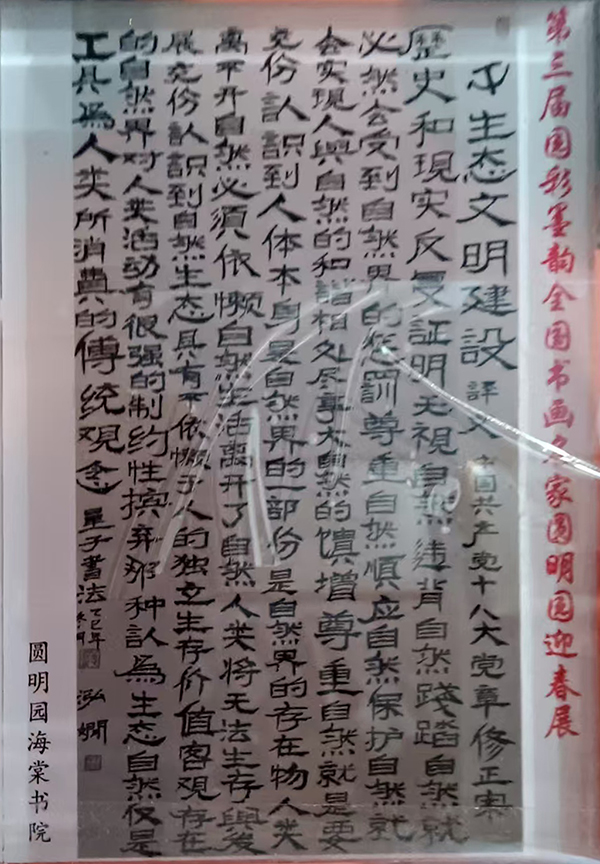 第三届国彩墨韵全国书画名家圆明园迎春展
生态文明建設 譯义 中国共产党十八大党章修正案
歷史和現实反复証明无視自然違背自然踐踏自然就
必然会受到自然界的惩訓尊重自然慎应自然保护自然就
会实現人與自然的和諧相处尽享大自然的饋增尊重自然就是要
充份認識到人体本身是自然界的一部份是自然界的存在物人类
离不开自然必須依懒自然生活离开了自然人类将无法生存與發
展充份認識到自然生态具有不依懒于人的独立生存价值客观存在
的自然界对人类活动有很强的制约性摈弃那种認為生态自然仅是
工具為人类所消費的傳统观念 量子書法 乙巳年 泓嫻
圆明园海棠书院